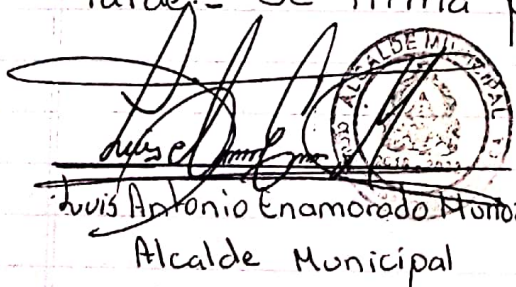 se firma
ALCALDE MUNICIPAL
Luis Antonio Enamorado Muñoz
Alcalde Municipal